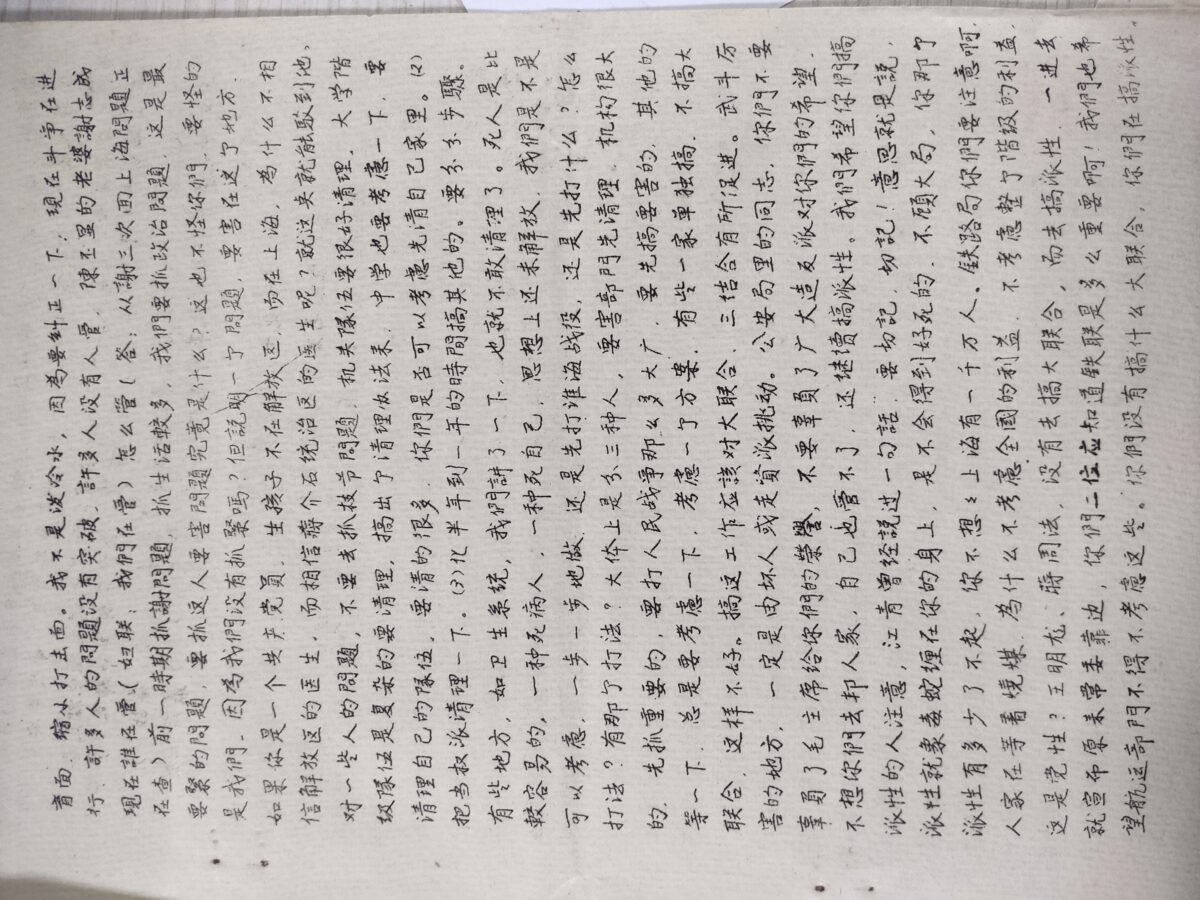 育面、缩小打击面。我不是泼冷水，因為要糾正一下，現在斗争在进
行、許多人的問題没有突破、許多人没有人管、陳丕显的老婆謝志成
現在誰在管（妇联：我們在管）怎么管（答：从謝三次回上海問題正
在查）前一時期抓謝問題，抓生活較多，我們要抓政治問題、这是最
要緊的問題，要抓这人要害問題究竟是什么？这也不怪你們、要怪的
是我們。因為我們没有抓緊嗎？但説明一个問題，要害在这个地方、
如果你是一个共产党員、生孩子不在解放区、而在上海，為什么不相
信解放区的医生、而相信蒋介石统治区的医生呢？就这条就能駁到他、
对一些人的問題，不要去抓枝节問題、机关隊伍要很好清理、大学階
级隊伍是复杂的要清理，搞出个清理办法来、中学也要考慮一下、要
清理自己的隊伍、要清的很多、你們是否可以考慮先清自己家里。(2)
把当权派清理一下。(3)化半年到一年的時間搞其他的。要分分步驟。
有些地方，如卫生系统，我們講了一下、也就不敢清理了。死人是比
較容易的，一种死病人、一种死自己、思想上还未解放、我們是不是
可以考慮、一步一步地做、还是先打淮海战役，还是先打什么？怎么
打法？有那个打法？大体上是分三种人，要害部門先清理、机构很大
的、先抓重要的，要打人民战爭那么多大广、要先搞要害的、其他的
等一下、总是要考慮一下、考慮一个方案、有些一家单独搞、不搞大
联合、这样不好。搞这工作应該对大联合、三结合有所促进。武斗厉
害的地方，一定是由坏人或走資派挑动。公安局里的同志，你們不要
辜負了毛主席给你們的榮譽，不要辜負了广大造反派对你們的希望、
不想你們去邦人家、自己也管不了、还继續搞派性。我們希望你們搞
派性的人注意，江青曾经説过一句話、要切記、切記！意思就是説，
派性就象毒蛇缠在你的身上，是不会得到好死的、不顧大局，你那个
派性有多少了不起，你不想々上海有一千万人。鉄路局你們要注意啊，
人家在等着燒煤、為什么不考慮全國的利益、不考慮整个階级的利益，
这是党性？王明龙、蒋周法，没有去搞大联合，而去搞派性、一进去
就宣布原来常委靠边，你們二位应知道鉄联是多么重要啊！我們也希
望航运部門不得不考慮这些。你們没有搞什么大联合，你們在搞派性。